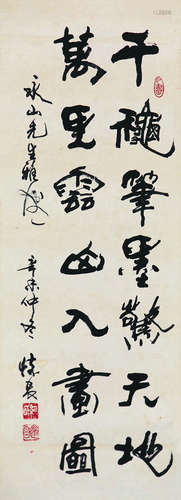 千龝筆墨驚天地
萬里雲山入畫圖
永山先生雅
辛未仲冬